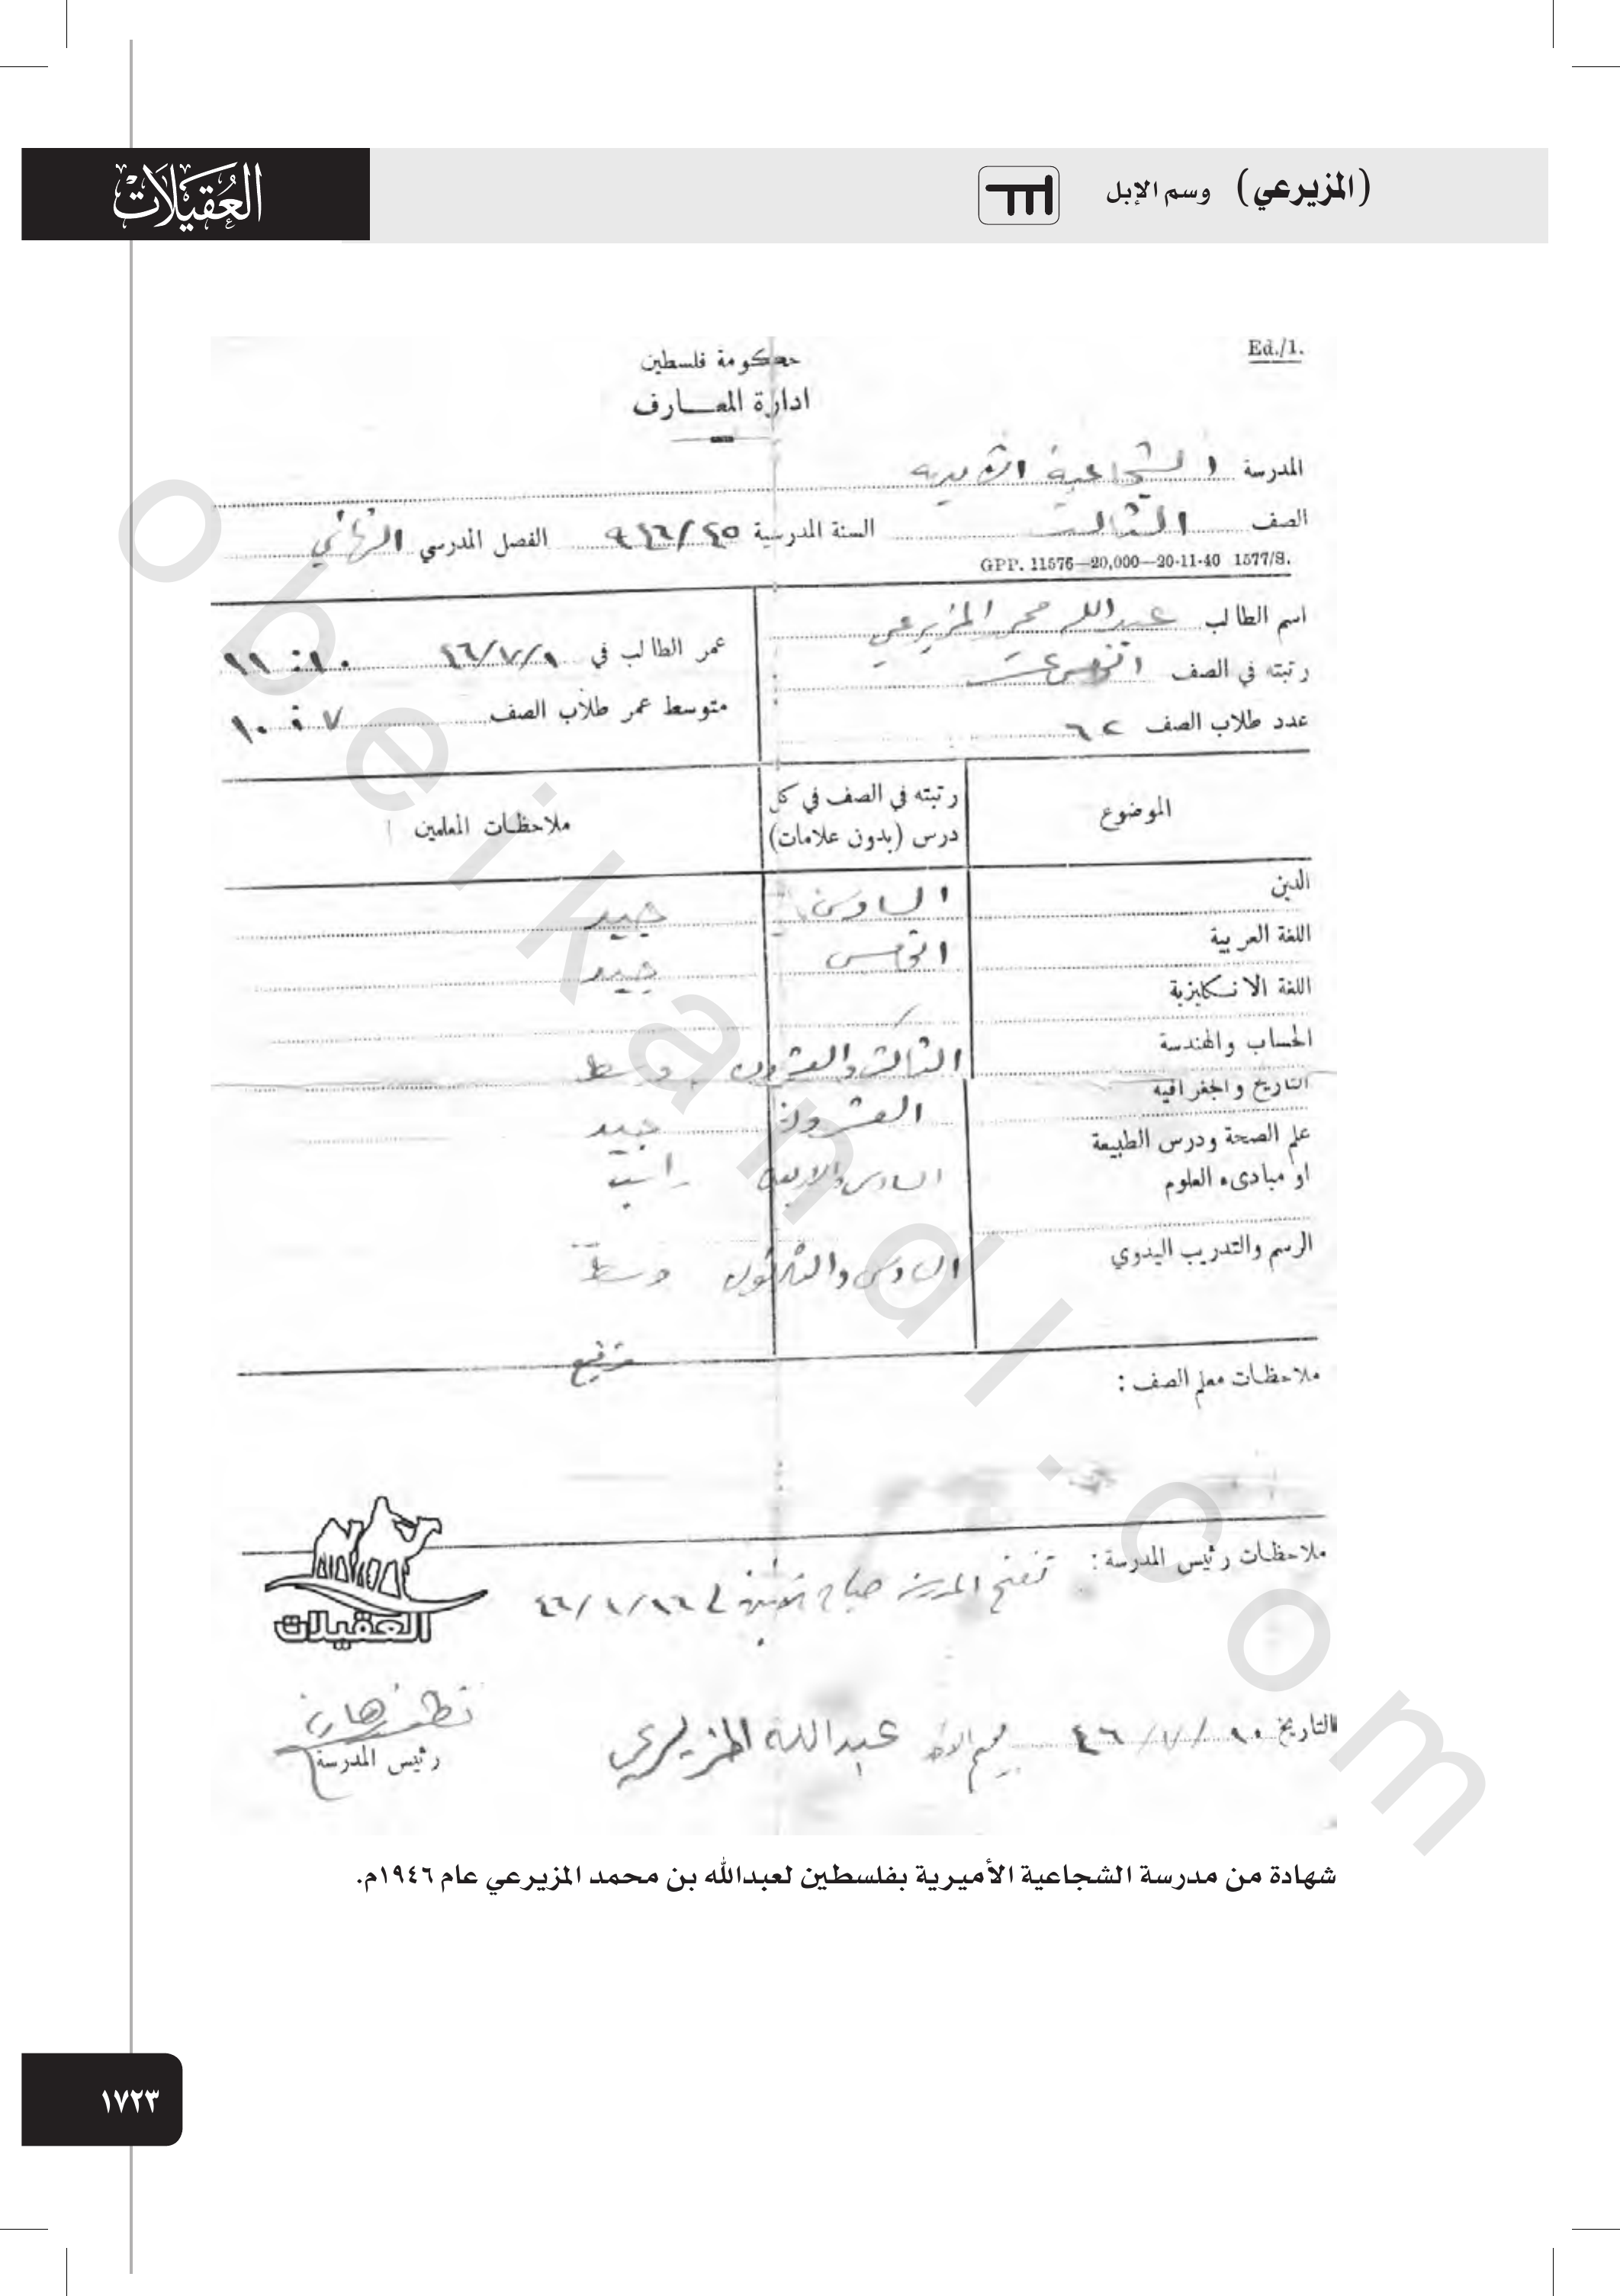 (المزيرعي) وسم الإبل
العقيلات
Ed./1.
حكومة فلسطين
ادارة المعارف
المدرسة الشجاعية الاميريه
الصف الثالث السنة المدرسية ٩٤٦/٤٥ الفصل المدرسي النهائي
GPP. 11576—20,000—20-11-40 1577/S.
اسم الطالب عبدالله محمد المزيرعي
عمر الطالب في ٤٦/٧/١
رتبته في الصف
عدد طلاب الصف ٦٢
متوسط عمر طلاب الصف
الموضوع
رتبته في الصف في كل درس (بدون علامات)
ملاحظات المعلمين
الدين السادس جيد
اللغة العربية الخامس جيد
اللغة الانكليزية
الحساب والهندسة الثالث والعشرون وسط
التاريخ والجغرافيه العشرون جيد
علم الصحة ودرس الطبيعة
او مبادىء العلوم السادس والاربعون راسب
الرسم والتدريب اليدوي السادس والثلاثون وسط
ترفيع
ملاحظات معلم الصف :
ملاحظات رئيس المدرسة : تفتح المدرسة صباح
العقيلات
التاريخ ١٠/٧/٤٦ عبدالله المزيرعي
رئيس المدرسة
شهادة من مدرسة الشجاعية الأميرية بفلسطين لعبدالله بن محمد المزيرعي عام ١٩٤٦م.
١٧٢٣
obeikandl.com